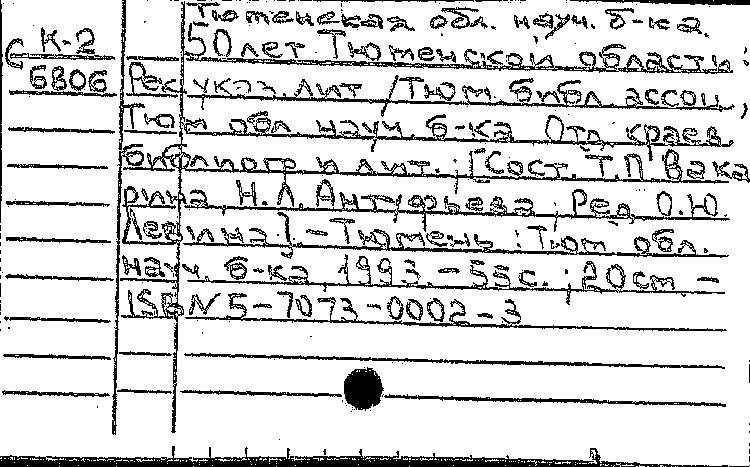 Тюменская обл. науч. б-ка.
К-2
50 лет Тюменской области:
6806
Рек. указ. лит / Тюм. библ. ассоц,
Тюм обл науч. б-ка Отд. краев.
библиогр и лит. ; [Сост. Т.П Вака
рина, Н.Л. Антуфьева ; Ред О.Ю.
Левина]. - Тюмень : Тюм обл.
науч. б-ка, 1993. - 55 с. ; 20 см -
ISBN 5-7073-0002-3